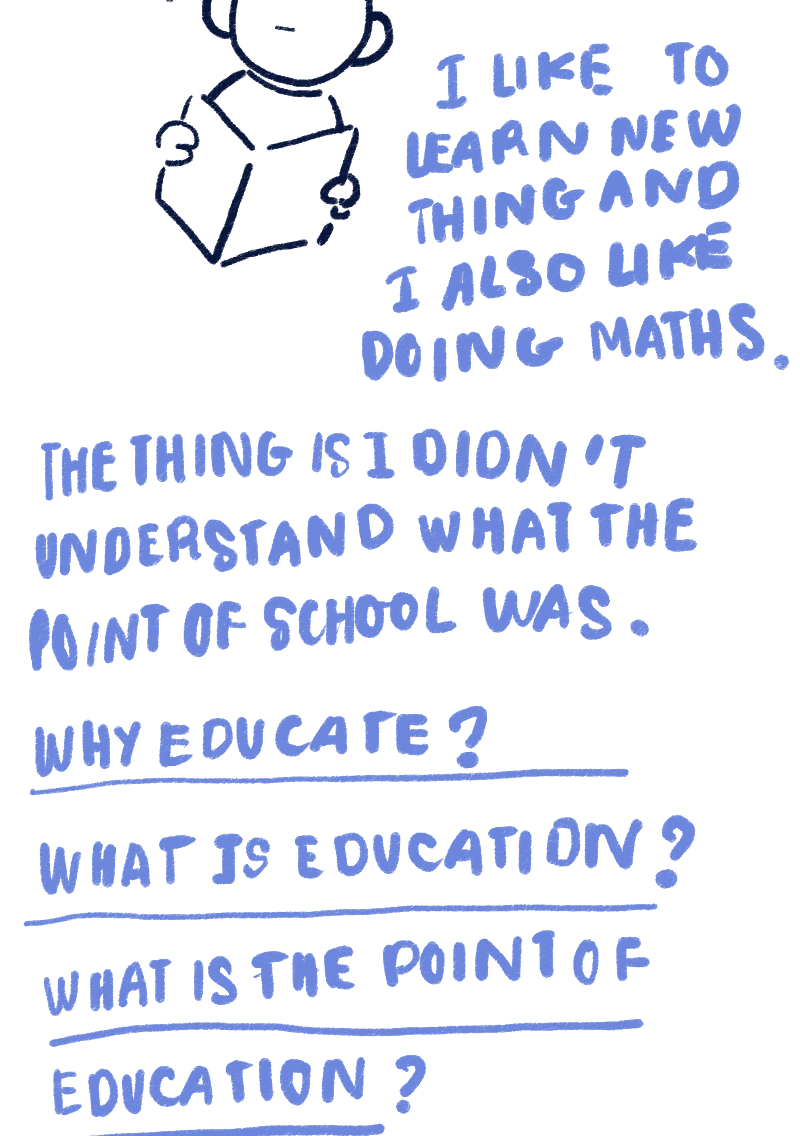 I LIKE TO
LEARN NEW
THING AND
I ALSO LIKE
DOING MATHS.
THE THING IS I DIDN'T
UNDERSTAND WHAT THE
POINT OF SCHOOL WAS.
WHY EDUCATE?
WHAT IS EDUCATION?
WHAT IS THE POINT OF
EDUCATION?